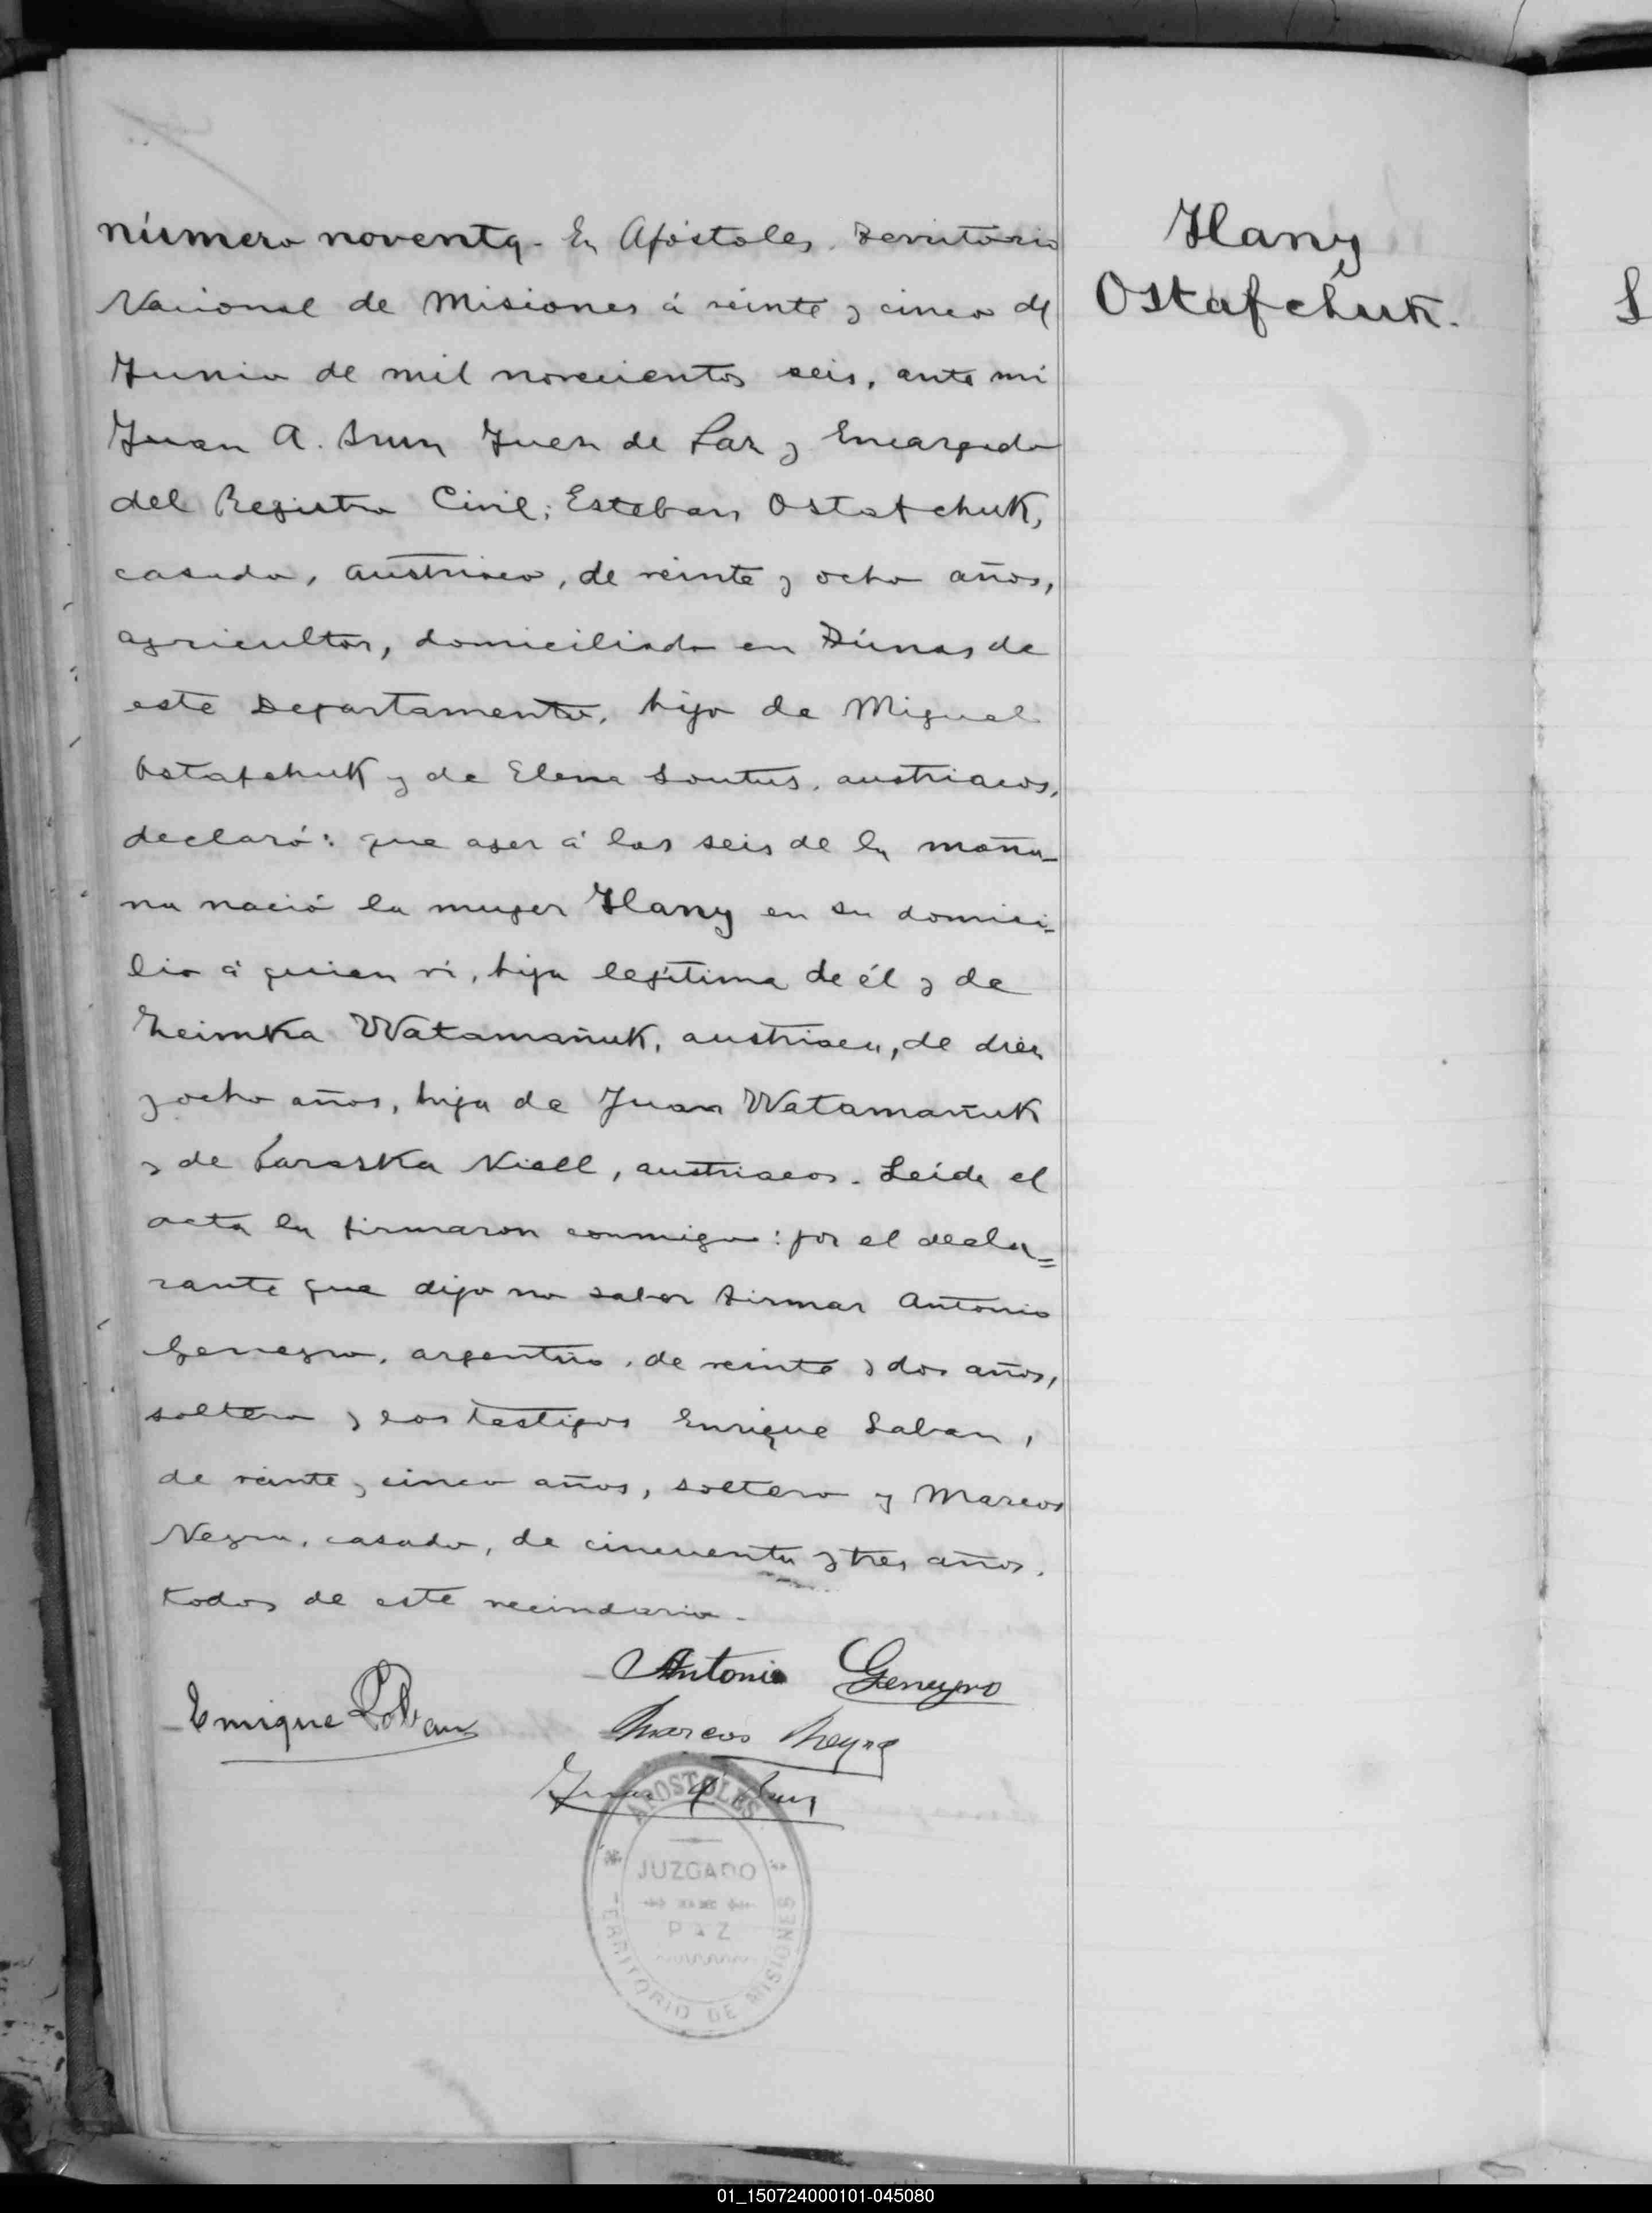 número noventa. En Apóstoles, Territorio
Nacional de Misiones á veinte y cinco de
Junio de mil novecientos seis, ante mi
Juan A. Juez de Paz y Encargado
del Registro Civil; Esteban Ostafchuk,
casado, austriaco, de veinte y ocho años,
agricultor, domiciliado en Tunas de
este Departamento, hijo de Miguel
Ostafchuk y de Elena Soutus, austriacos,
declaró: que ayer á las seis de la maña-
na nació la mujer Hany en su domici-
lio á quien ví, hija legítima de él y de
Heimka Watamañuk, austriaca, de diez
y ocho años, hija de Juan Watamañuk
y de Paraska Niell, austriacos. Leida el
acta la firmaron conmigo: por el decla=
rante que dijo no saber firmar Antonio
Geneyro, argentino, de veinte y dos años,
soltero y los testigos Enrique Laban,
de veinte y cinco años, soltero y Marcos
Neyra, casado, de cincuenta y tres años,
todos de este vecindario.
Antonio Geneyro
Enrique Laban
Marcos Neyra
Juan A.
APOSTOLES
JUZGADO
PAZ
TERRITORIO DE MISIONES
Hany
Ostafchuk.
01_150724000101-045080